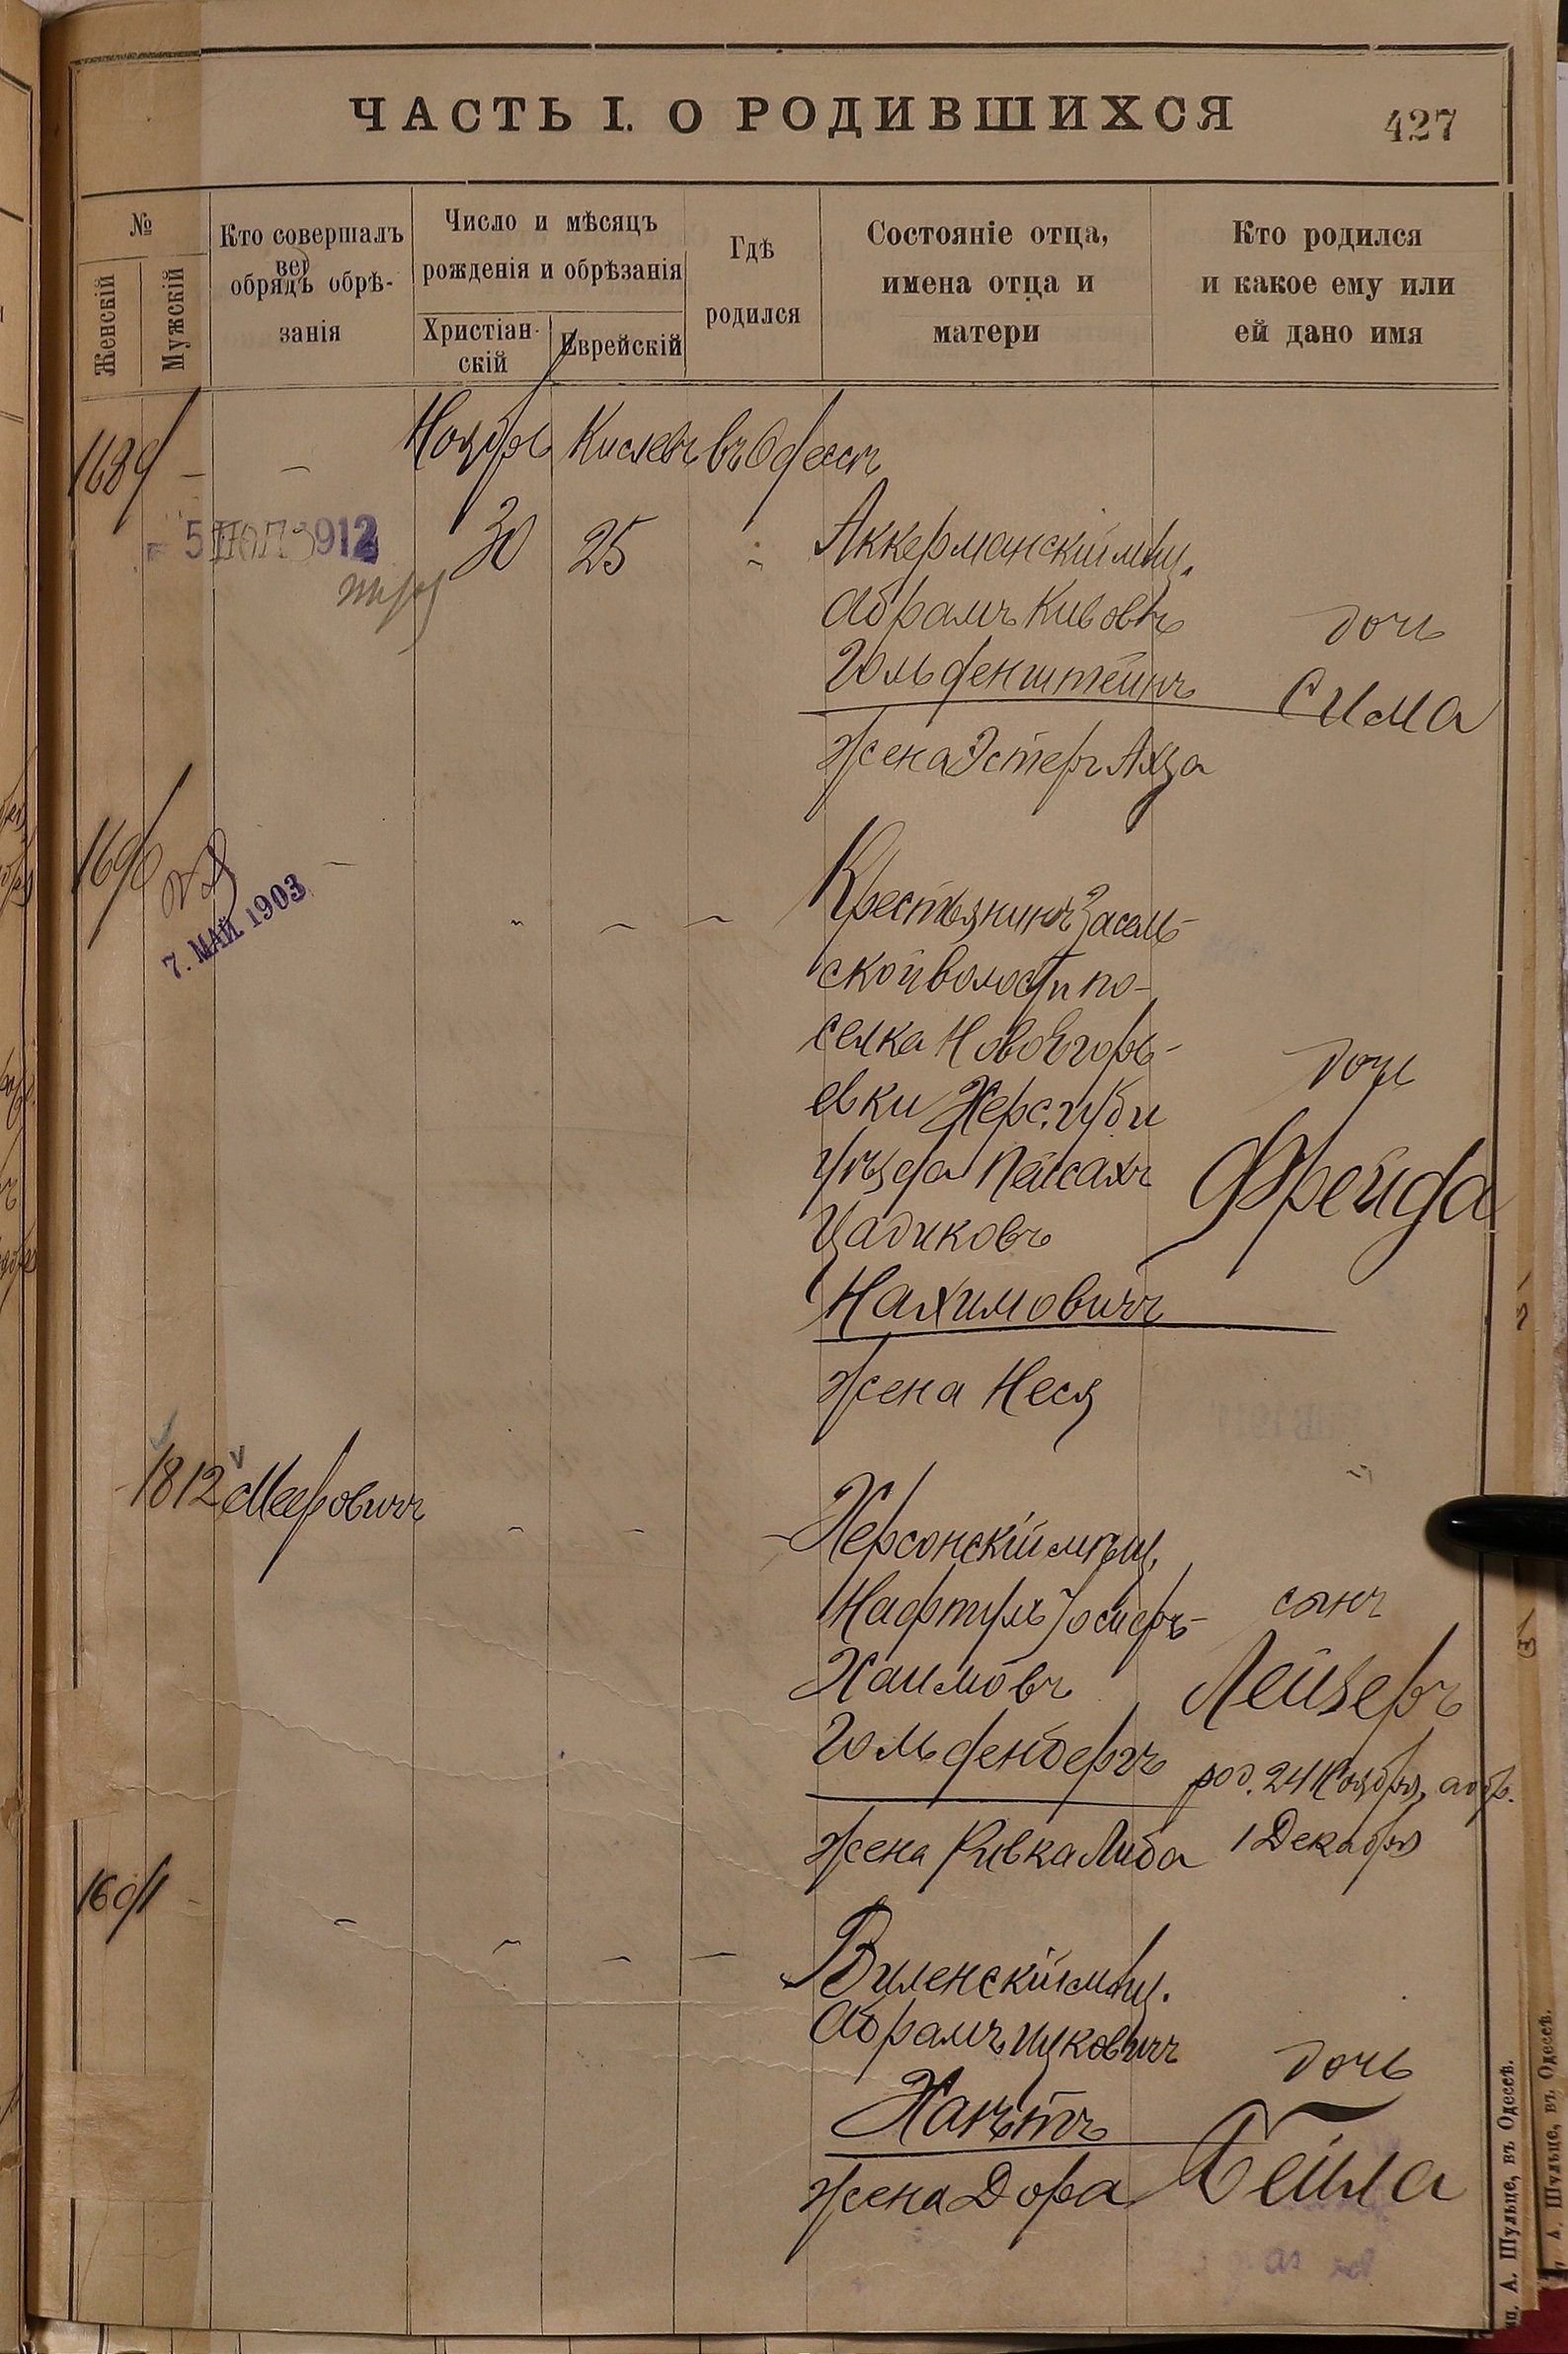 ЧАСТЬ I. О РОДИВШИХСЯ
427
№
Женскій
Мужскій
Кто совершалъ
обрядъ обрѣ-
занія
Число и мѣсяцъ
рожденія и обрѣзанія
Христіан-
скій
Еврейскій
Гдѣ
родился
Состояніе отца,
имена отца и
матери
Кто родился
и какое ему или
ей дано имя
1689 – –
Ноября Кислевъ въ Одессѣ
5 1912
30 25
Аккерманскій мѣщ.
Абрамъ Кивовъ
Гольденштейнъ
жена Эстеръ Ахза
дочь
Сима
1690 –
7. МАЙ 1903
Крестьянинъ Засель-
ской волости по-
селка Ново Егорь-
евки Херс. губ и
уѣзда Пейсахъ
Цадиковъ
Нахимовичъ
жена Неся
дочь
Фрейда
1812 Мееровичъ
Херсонскій мѣщ.
Нафтулъ Іосифъ-
Хаимовъ
Гольденбергъ
жена Ривка Либа
сынъ
Лейзеръ
род. 24 Ноября, а обр.
1 Декабря
1691 –
Виленскій мѣщ.
Абрамъ Ицковичъ
Ханѣтъ
жена Дора
дочь
Бейла
А. Шульце, въ Одессѣ.
А. Шульце, въ Одессѣ.